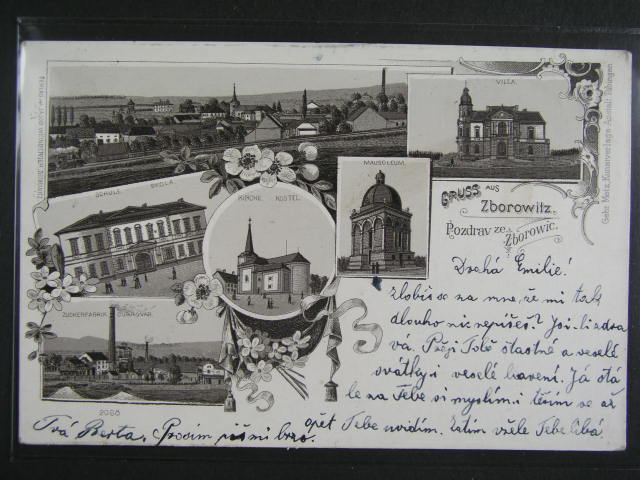 VILLA.
MAUSOLEUM.
SCHULE. ŠKOLA.
KIRCHE. KOSTEL.
GRUSS AUS
Zborowitz.
Pozdrav ze Zborovic.
ZUCKERFABRIK. CUKROVAR.
2080
Gebr. Metz, Kunstverlags-Anstalt, Tübingen.
Drahá Emilie!
Zlobíš se na mne, že mi tak
dlouho nic nepíšeš? Jsi-li zdra
vá. Přeji Tobě šťastné a veselé
svátky i veselé bavení. Já stá
le na Tebe si myslím i těším se až
opět Tebe uvidím. Zatím vřele Tebe líbá
Tvá Berta. Prosím piš mi brzo.